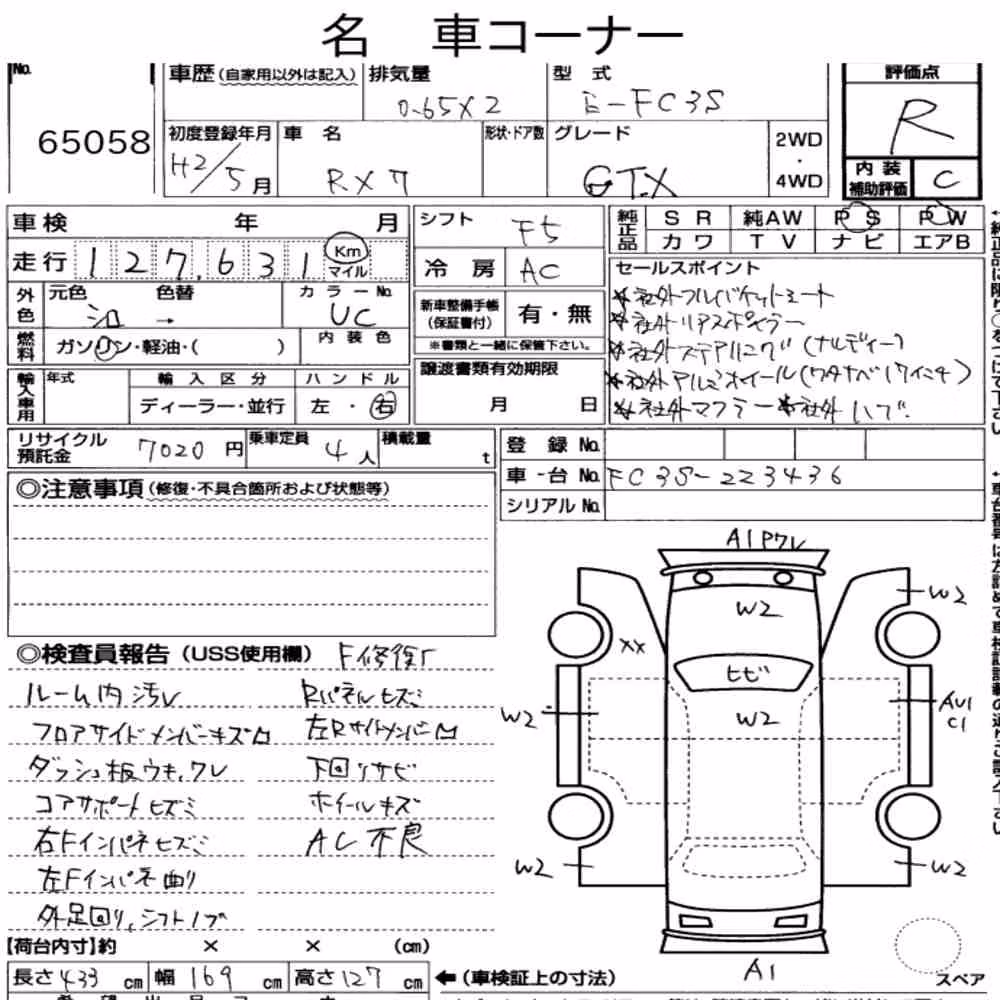 名 車コーナー
No.
65058
車歴(自家用以外は記入)
排気量
0.65X2
型 式
E-FC3S
評価点
R
初度登録年月
H2/5月
車 名
RX7
形状・ドア数
グレード
GTX
2WD
・
4WD
内装
補助評価
C
車検 年 月
シフト
F5
純正品
SR 純AW PS PW
カワ TV ナビ エアB
走行 127,631 Km
マイル
冷房
AC
セールスポイント
*社外フルバケットシート
*社外リアスポイラー
*社外ステアリング(ナルディー)
*社外アルミホイール(ワタナベ17インチ)
*社外マフラー *社外ハブ
外色
元色 色替
シロ →
カラーNo.
UC
新車整備手帳
(保証書付)
有・無
※書類と一緒に保管下さい。
燃料
ガソリン・軽油・( )
内装色
輸入車用
年式
輸入区分
ディーラー・並行
ハンドル
左・右
譲渡書類有効期限
月 日
リサイクル
預託金
7020円
乗車定員
4人
積載量
t
登録No.
車台No.
FC3S-223436
シリアルNo.
◎注意事項(修復・不具合箇所および状態等)
◎検査員報告(USS使用欄) F修復
ルーム内汚レ
Rパネルヒズミ
フロアサイドメンバーキズ凹
左Rサイドメンバー凹
ダッシュ板ウキ,ワレ
下回リサビ
コアサポートヒズミ
ホイールキズ
右Fインパネヒズミ
AC不良
左Fインパネ曲り
外足回り,シフトノブ
A1Pワレ
W2
W2
XX
ヒビ
W2
W2
AU1
C1
W2
W2
A1
スペア
【荷台内寸】約 × × (cm)
長さ433cm 幅169cm 高さ127cm
←(車検証上の寸法)